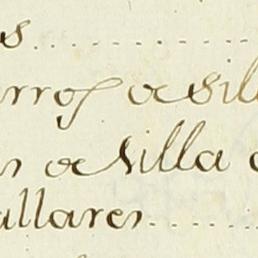 s
rros de Vil
s de Villa d
allares